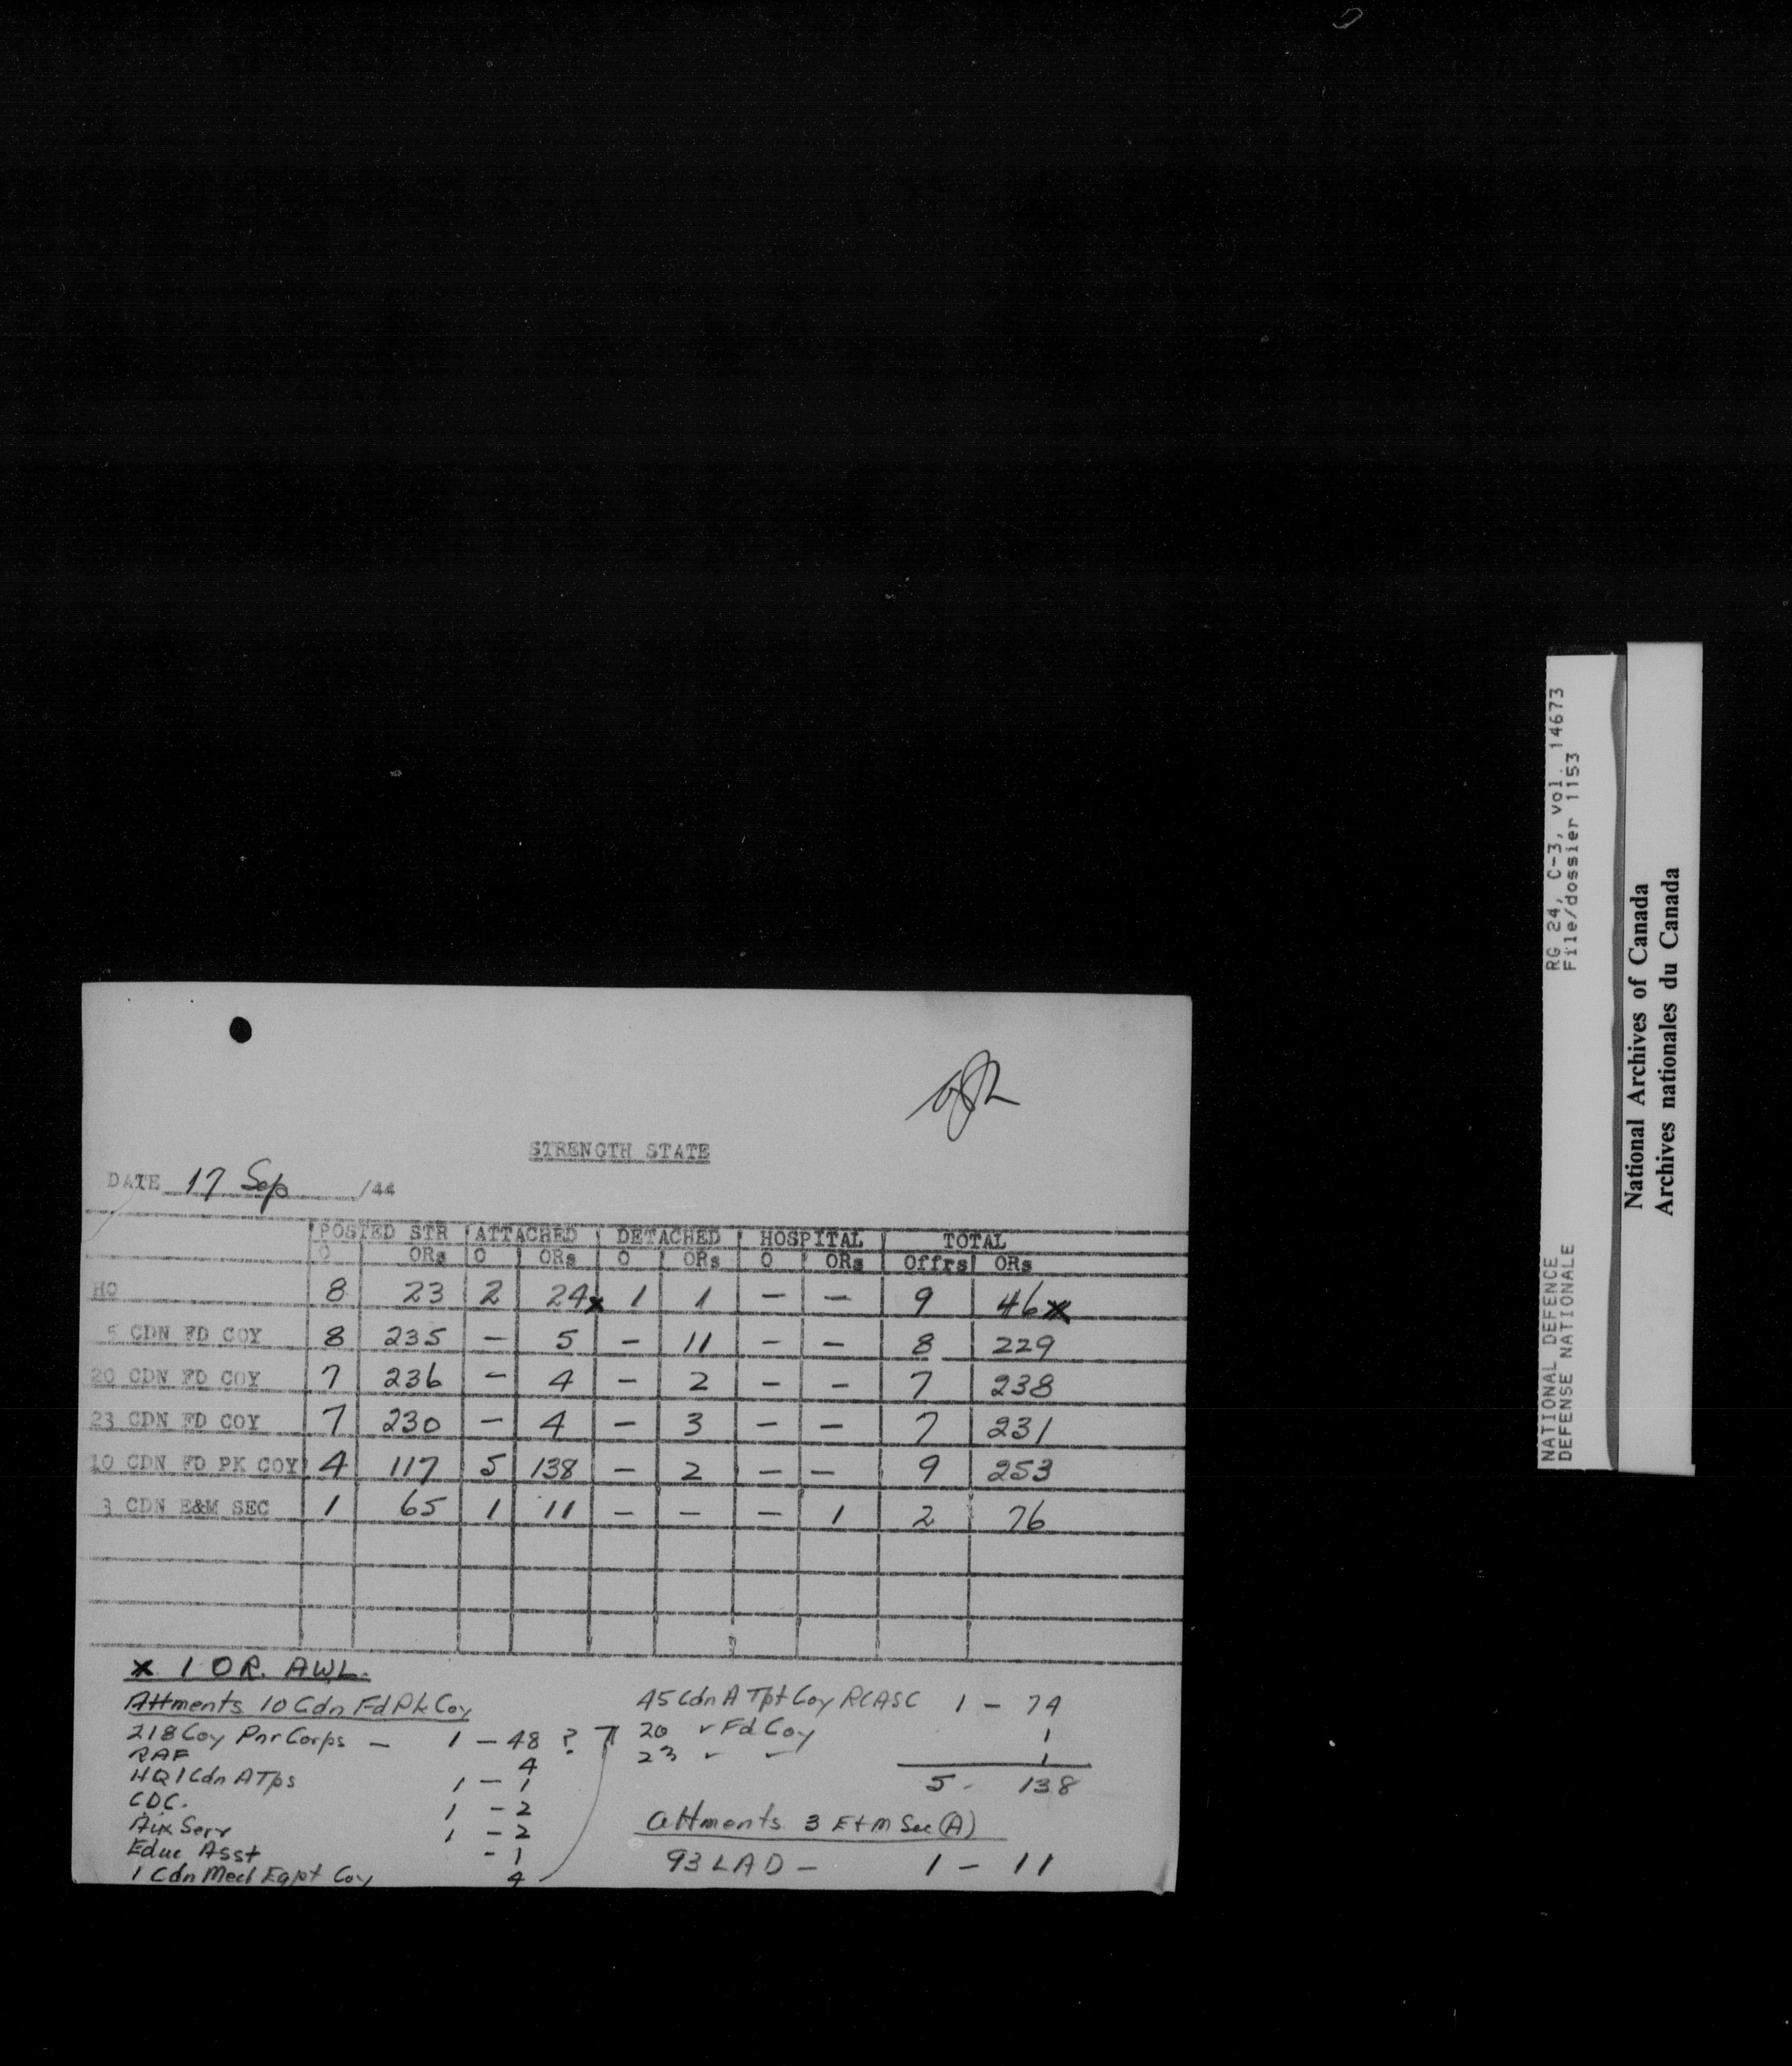 STRENGTH STATE
DATE 17 Sep /44
POSTED STR ATTACHED DETACHED HOSPITAL TOTAL
O ORs O ORs O ORs O ORs Offrs ORs
HQ 8 23 2 24x 1 1 — — 9 46x
5 CDN FD COY 8 235 — 5 — 11 — — 8 229
20 CDN FD COY 7 236 — 4 — 2 — — 7 238
23 CDN FD COY 7 230 — 4 — 3 — — 7 231
10 CDN FD PK COY 4 117 5 138 — 2 — — 9 253
3 CDN E&M SEC 1 65 1 11 — — — 1 2 76
x 1 OR. AWL.
Attments 10 Cdn Fd Pk Coy
218 Coy Pnr Corps — 1 — 48 ?
RAF 4
HQ 1 Cdn A Tps 1 — 1
C.D.C. 1 — 2
Aux Serv 1 — 2
Educ Asst - 1
1 Cdn Mech Eqpt Coy 4
45 Cdn A Tpt Coy RCASC 1 — 74
20 " Fd Coy 1
23 " " 1
5 - 138
Attments 3 E+M Sec (A)
93 LAD — 1 — 11
RG 24, C-3, vol. 14673
File/dossier 1153
NATIONAL DEFENCE
DEFENSE NATIONALE
National Archives of Canada
Archives nationales du Canada